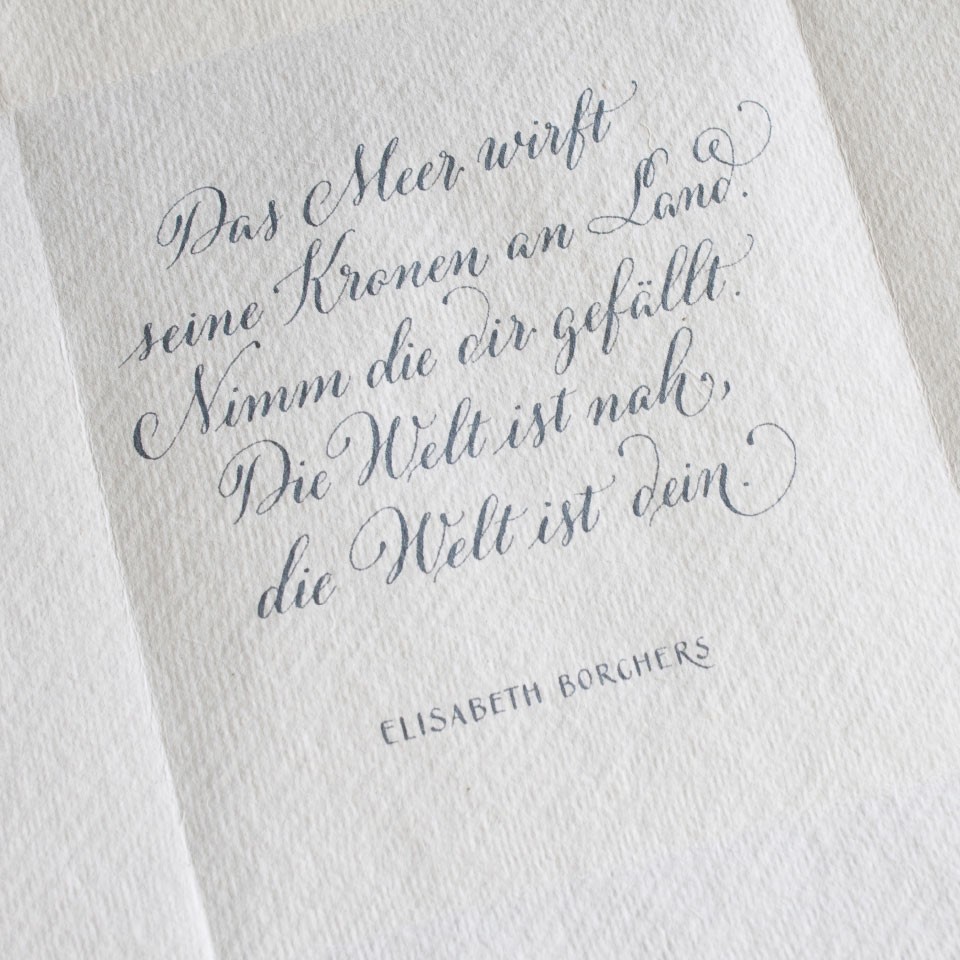 Das Meer wirft
seine Kronen an Land.
Nimm die dir gefällt.
Die Welt ist nah,
die Welt ist dein.
ELISABETH BORCHERS